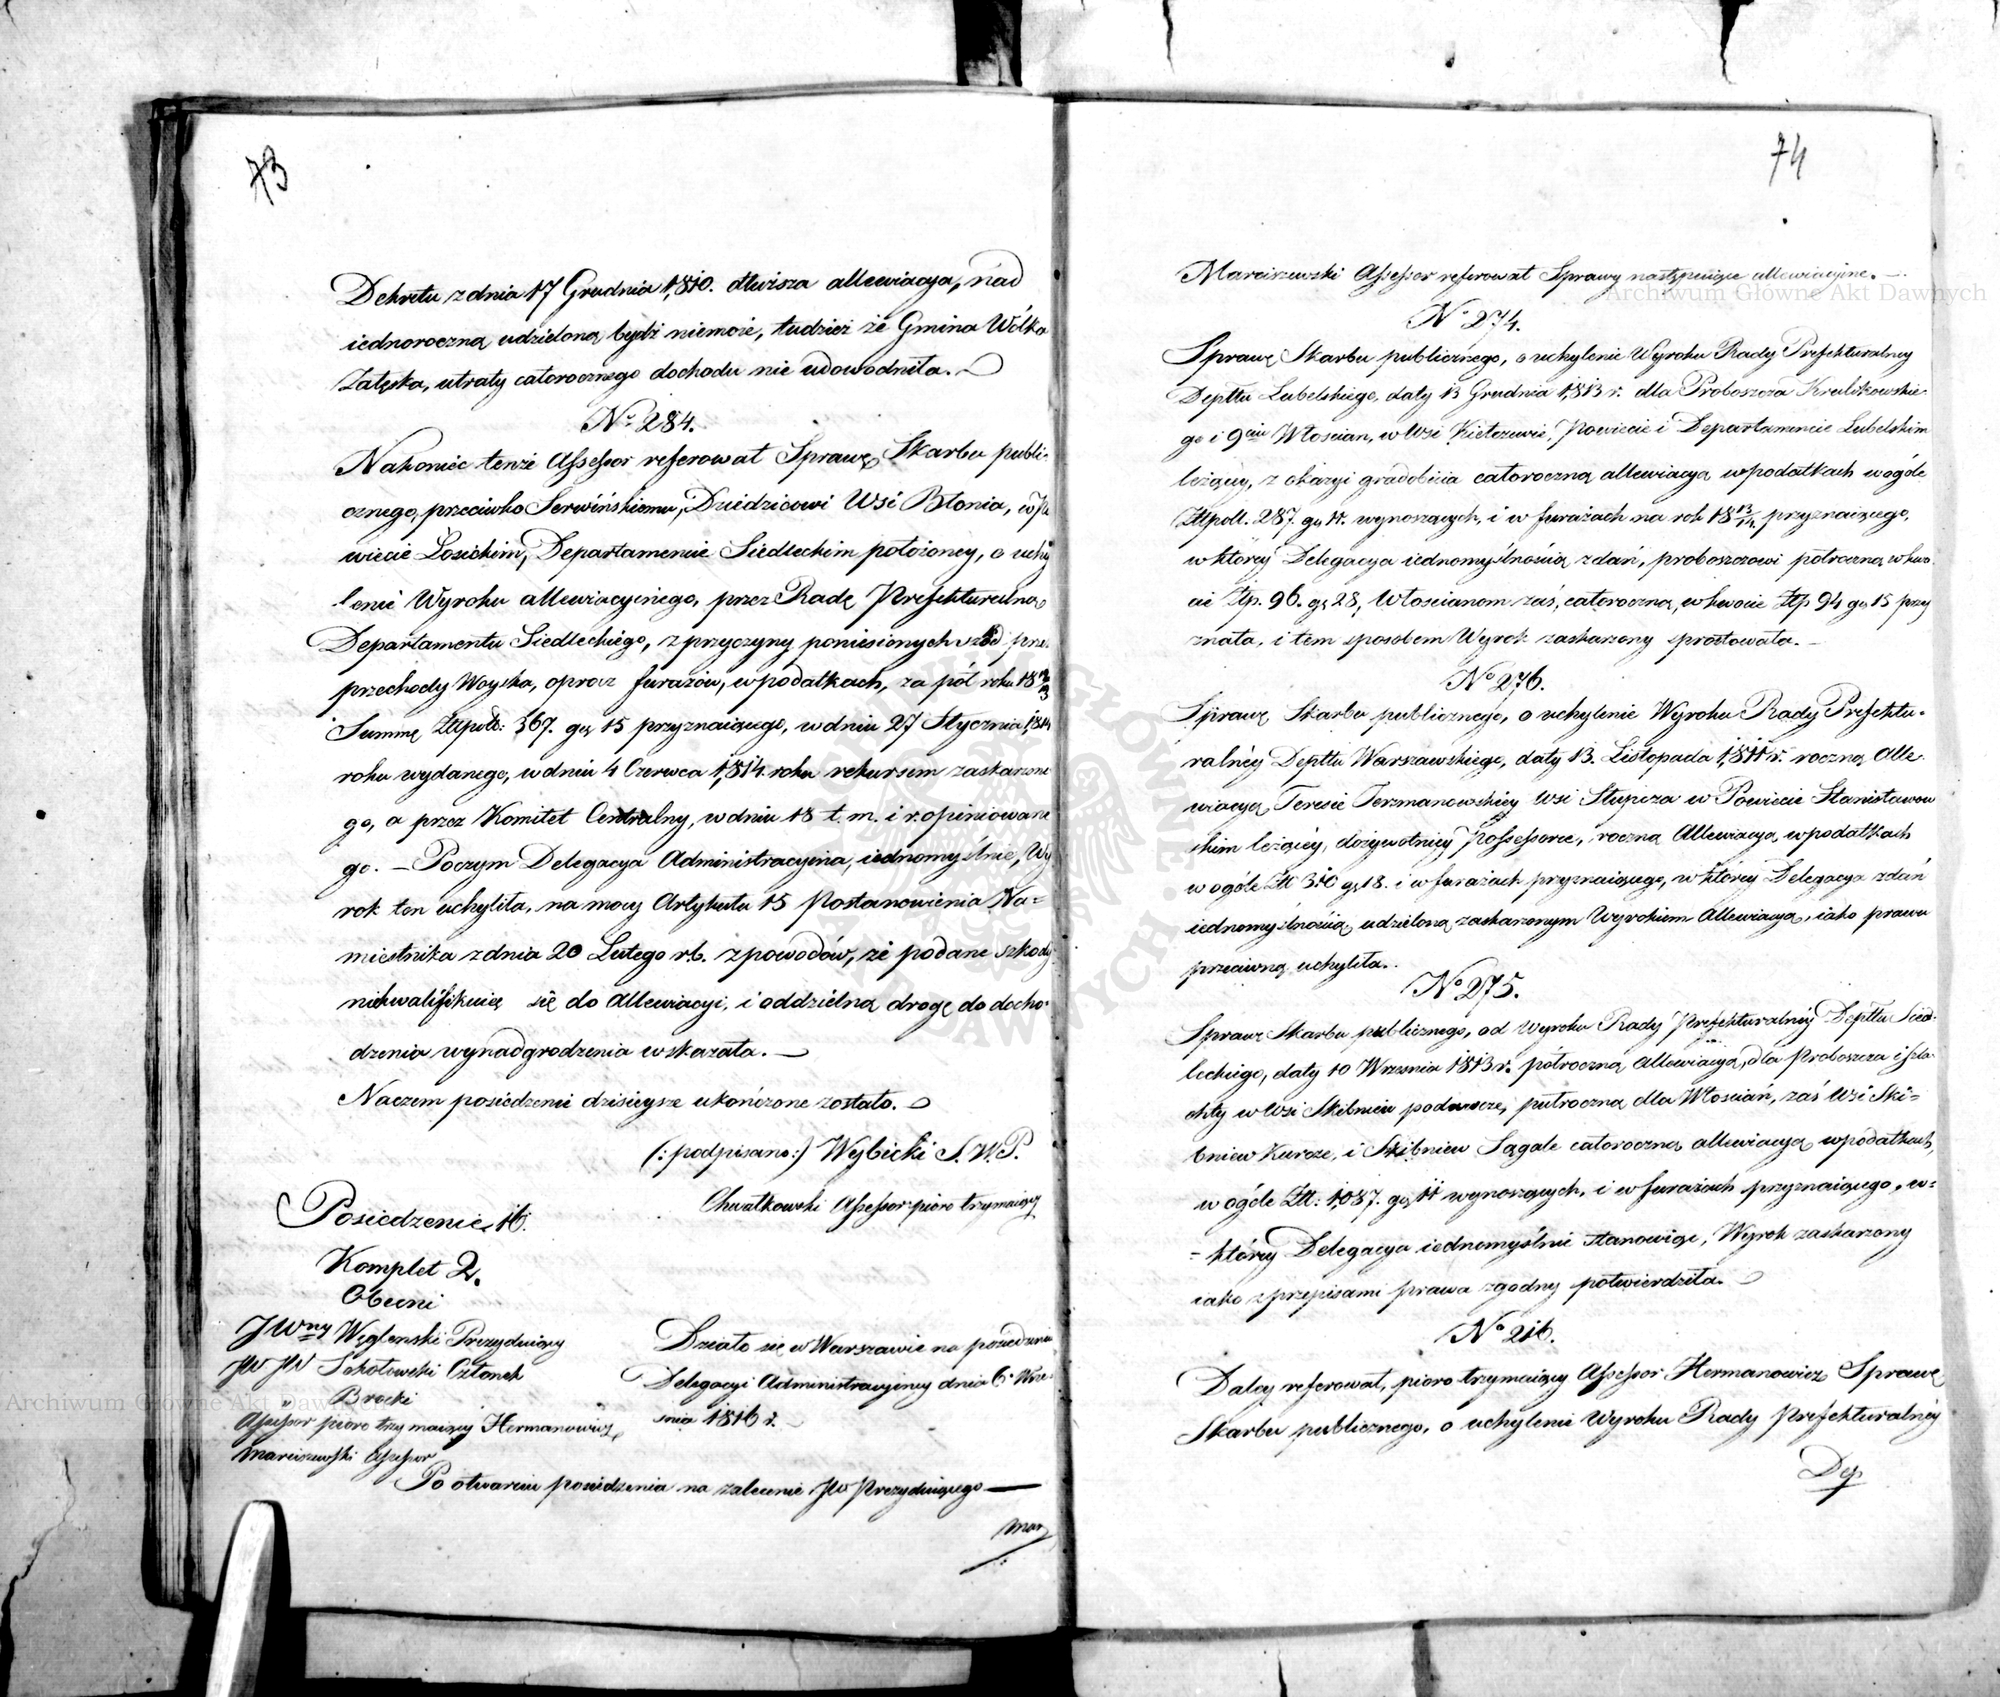 73
Dekretu z dnia 17 Grudnia 1,810. dłuższa allewiacya, nad
iednoroczną udzieloną bydź niemoże, tudzież że Gmina Wólka
Załęska, utraty całorocznego dochodu nie udowodniła. —
No 284.
Nakoniec tenże Assessor referował Sprawę Skarbu publi-
cznego, przeciwko Serwińskiemu, Dziedzicowi Wsi Błonia, w Po
wiecie Łosickim, Departamencie Siedleckim położoney, o uchy
lenie Wyroku allewiacyinego, przez Radę Prefekturalną
Departamentu Siedleckiego, z przyczyny poniesionych szkód prze
przechody Woyska, oprocz furażów, w podatkach, za pół roku 18 12/13
Summę Złłpols: 367. gr 15 przyznaiącego, w dniu 27 Stycznia 1,814
roku wydanego, w dniu 4 Czerwca 1,814. roku rekursem zaskarżone
go, a przez Komitet Centralny, w dniu 18 t. m. i r. opiniowane
go. — Poczym Delegacya Administracyina, iednomyślnie, Wy
rok ten uchyliła, na mocy Artykułu 15 Postanowienia Na=
miestnika z dnia 20 Lutego r.b. z powodów, że podane szkody
niekwalifikuią się do Allewiacyi, i oddzielną drogę do docho-
dzenia wynadgrodzenia wskazała. —
Naczem posiedzenie dzisieysze ukończone zostało. —
(:podpisano:) Wybicki S. W. P.
Chwałkowski Assessor pioro trzymaiący
Posiedzenie 16.
Komplet 2.
Obecni
JWny Węglenski Prezyduiący
JW JW Sokołowski Członek
„ Brocki
Assessor pioro trzymaiący Hermanowicz
Marciszewski Assessor
Działo się w Warszawie na posiedzeniu
Delegacyi Administracyiney dnia 6. Wrze-
śnia 1816 r. —
Po otwarciu posiedzenia na zalecenie JW Prezyduiącego —
Mar
74
Marciszewski Assessor referował Sprawy następuiące allewiacyine. —
No 274.
Sprawę Skarbu publicznego, o uchylenie Wyroku Rady Prefekturalney
Depttu Lubelskiego, daty 13 Grudnia 1,813 r. dla Proboszcza Krulikowskie-
go i 9ciu Włościan, w Wsi Kiełczewie, Powiecie i Departamencie Lubelskim
leżącey, z okazyi gradobicia całoroczną allewiacyą w podatkach w ogóle
Złłpoll. 287. gr 11. wynoszących, i w furażach na rok 18 13/14. przyznaiącego,
w którey Delegacya iednomyślnością zdań, proboszczowi półroczną w kwo-
cie Złp. 96. gr 28, Włościanom zaś, całoroczną, w kwocie Złp 94 gr 15 przy
znała, i tem sposobem Wyrok zaskarżony sprostowała. —
No 276.
Sprawę Skarbu publicznego, o uchylenie Wyroku Rady Prefektu-
ralney Depttu Warszawskiego, daty 13. Listopada 1,811 r. roczną Alle-
wiacyą Teresie Terzmanowskiey Wsi Słupcza w Powiecie Stanisławow
skim leżącéy, dożywotniey Possessorce, roczną Allewiacyą w podatkach
w ogóle Złł 310 gr 18. i w furażach przyznaiącego, w którey Delegacya zdań
iednomyślnością, udzieloną zaskarżonym Wyrokiem Allewiacyą, iako prawu
przeciwną uchyliła.
No 275.
Sprawę Skarbu publicznego, od Wyroku Rady Prefekturalnéy Depttu Sied-
leckiego, daty 10 Września 1813 r. półroczną Allewiacyą, dla Proboszcza i szla-
chty w Wsi Skibniew podawcze, pułroczną dla Włościan, zaś Wsi Ski=
bniew Kurcze, i Skibniew Sągale całoroczną allewiacyą w podatkach,
w ogóle Złł: 1,087. gr 11 wynoszących, i w furażach przyznaiącego, w=
= którey Delegacya iednomyślnie stanowiąc, Wyrok zaskarżony
iako z przepisami prawa zgodny potwierdziła. —
No 216.
Daley referował, pioro trzymaiący Assessor Hermanowicz Sprawę
Skarbu publicznego, o uchylenie Wyroku Rady Prefekturalnéy
Dep
Archiwum Główne Akt Dawnych